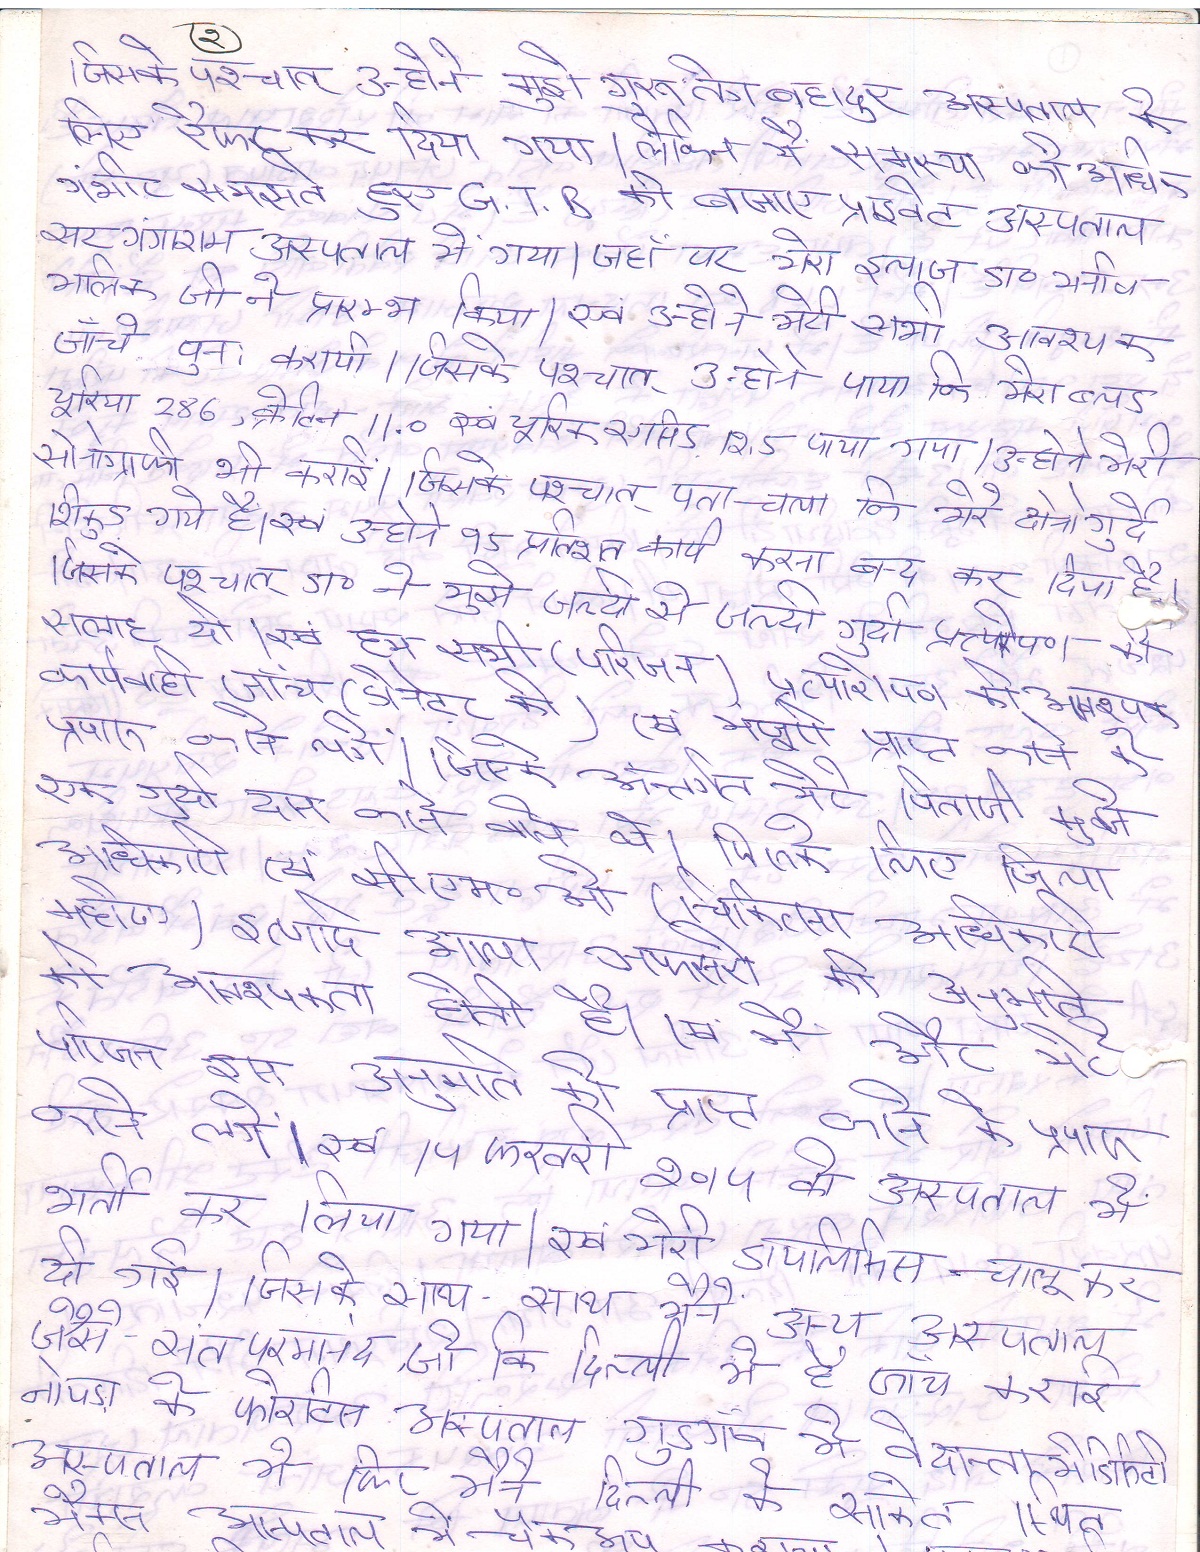 २
जिसके पश्चात् उन्होने मुझे गुरू तेग बहादुर अस्पताल के
लिए रैफर कर दिया गया। लेकिन मैं समस्या को अधिक
गंभीर समझते हुए G.T.B की बजाए प्राइवेट अस्पताल
सर गंगाराम अस्पताल में गया। जहाँ पर मेरा इलाज डा०
मलिक जी ने प्रारम्भ किया। एवं उन्होने मेरी सभी आवश्यक
जाँचे पुनः करायी। जिसके पश्चात् उन्होने पाया कि मेरा ब्लड
यूरिया 286, 11.0 एवं यूरिक एसिड पाया गया। उन्होने मेरी
सोनोग्राफी भी कराई। जिसके पश्चात् पता चला कि मेरे दोनो गुर्दे
शिकुड़ गये है। एवं उन्होने ९५ प्रतिशत कार्य करना बन्द कर दिया है।
जिसके पश्चात् डा० ने मुझे जल्दी से जल्दी गुर्दा प्रत्यारोपण की
सलाह दी। एवं हम सभी (परिजन) प्रत्यारोपण की आवश्यक
कार्यवाही जाँच (डोनेटर की) एवं मंजूरी प्राप्त करने के
प्रयास करने लगे। जिसके अन्तर्गत मेरे पिताजी मुझे
एक गुर्दा दान करने वाले थे। जिसके लिए जिला
अधिकारी एवं सी एम० ओ (चिकित्सा अधिकारी
महोदय) इत्यादि आला अफसरो की अनुमति
की आवश्यकता होती है। एवं मैं और मेरे
परिजन इस अनुमति को प्राप्त करने के प्रयास
करने लगे। एवं 14 फरवरी २०१५ को अस्पताल में
भर्ती कर लिया गया। एवं मेरी डायलिसिस चालू कर
दी गई। जिसके साथ-साथ मैने अन्य अस्पताल
जैसे- संत परमानंद जो कि दिल्ली मे है जाँच कराई
नोएडा के फोर्टिस अस्पताल गुडगाँव मे वेदान्ता, मेडिसिटी
अस्पताल मे फिर मैने दिल्ली के साकेत स्थित
मैक्स अस्पताल में चैकअप